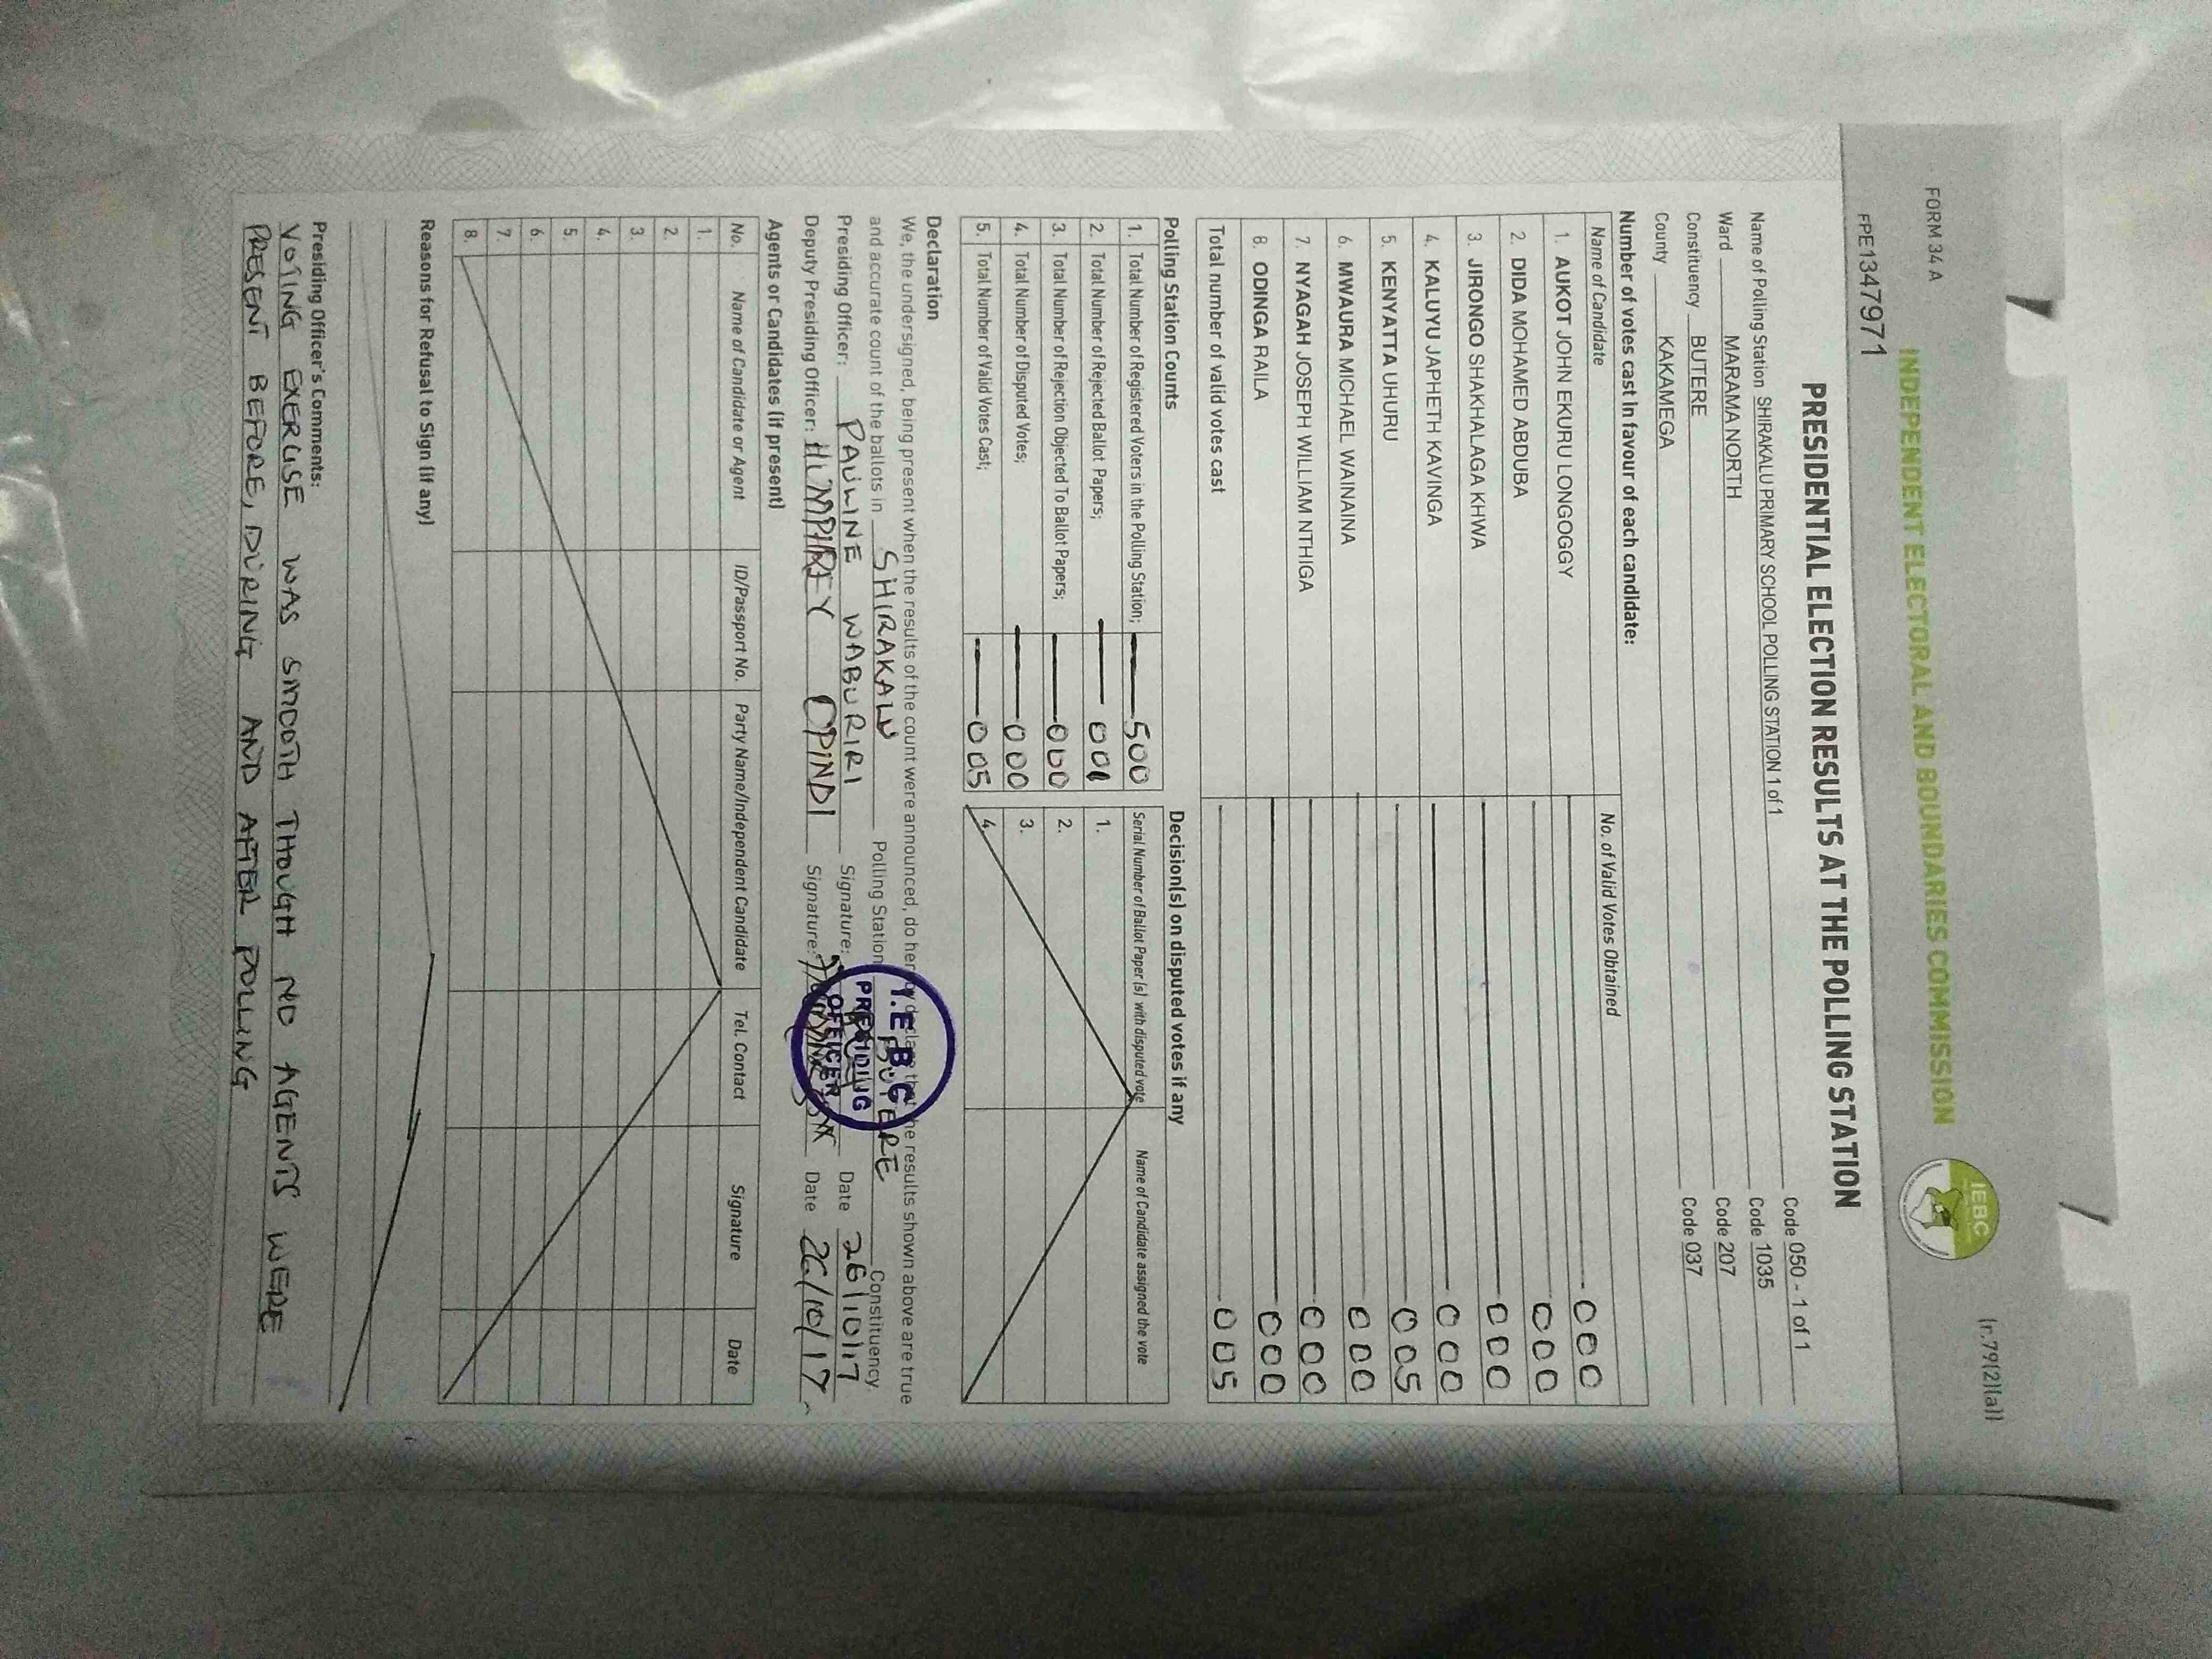 FORM 34 A
(r.79(2)(a))
INDEPENDENT ELECTORAL AND BOUNDARIES COMMISSION
IEBC
FPE1347971
PRESIDENTIAL ELECTION RESULTS AT THE POLLING STATION
Name of Polling Station SHIRAKALU PRIMARY SCHOOL POLLING STATION 1 of 1 Code 050 - 1 of 1
Ward MARAMA NORTH Code 1035
Constituency BUTERE Code 207
County KAKAMEGA Code 037
Number of votes cast in favour of each candidate:
Name of Candidate No. of Valid Votes Obtained
1. AUKOT JOHN EKURU LONGOGGY 000
2. DIDA MOHAMED ABDUBA 000
3. JIRONGO SHAKHALAGA KHWA 000
4. KALUYU JAPHETH KAVINGA 000
5. KENYATTA UHURU 005
6. MWAURA MICHAEL WAINAINA 000
7. NYAGAH JOSEPH WILLIAM NTHIGA 000
8. ODINGA RAILA 000
Total number of valid votes cast 005
Polling Station Counts
1. Total Number of Registered Voters in the Polling Station; 500
2. Total Number of Rejected Ballot Papers; 001
3. Total Number of Rejection Objected To Ballot Papers; 000
4. Total Number of Disputed Votes; 000
5. Total Number of Valid Votes Cast; 005
Decision(s) on disputed votes if any
Serial Number of Ballot Paper (s) with disputed vote Name of Candidate assigned the vote
1.
2.
3.
4.
Declaration
We, the undersigned, being present when the results of the count were announced, do hereby declare that the results shown above are true
and accurate count of the ballots in SHIRAKALU Polling Station BUTERE Constituency.
Presiding Officer: PAULINE WABURIRI Signature: Date 26/10/17
Deputy Presiding Officer: HUMPHREY OPINDI Signature: Date 26/10/17
I.E.B.C
PRESIDING
OFFICER
Agents or Candidates (if present)
No. Name of Candidate or Agent ID/Passport No. Party Name/Independent Candidate Tel. Contact Signature Date
1.
2.
3.
4.
5.
6.
7.
8.
Reasons for Refusal to Sign (if any)
Presiding Officer's Comments:
VOTING EXERCISE WAS SMOOTH THOUGH NO AGENTS WERE
PRESENT BEFORE, DURING AND AFTER POLLING